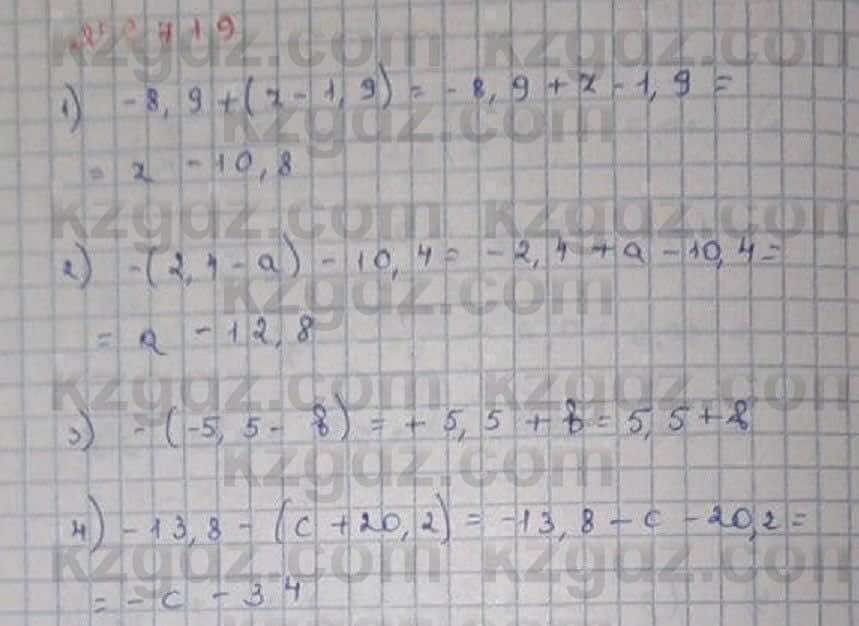 № 719
1) -8,9+(x-1,9)=-8,9+x-1,9=
= x -10,8
2) -(2,4-a)-10,4= -2,4+a-10,4=
= a -12,8
3) -(-5,5- b)=+5,5+b=5,5+b
4) -13,8-(c+20,2)=-13,8-c-20,2=
=-c-34
kzgdz.com kzgdz.com
kzgdz.com
kzgdz.com kzgdz.com
kzgdz.com
kzgdz.com kzgdz.com
kzgdz.com
kzgdz.com kzgdz.com